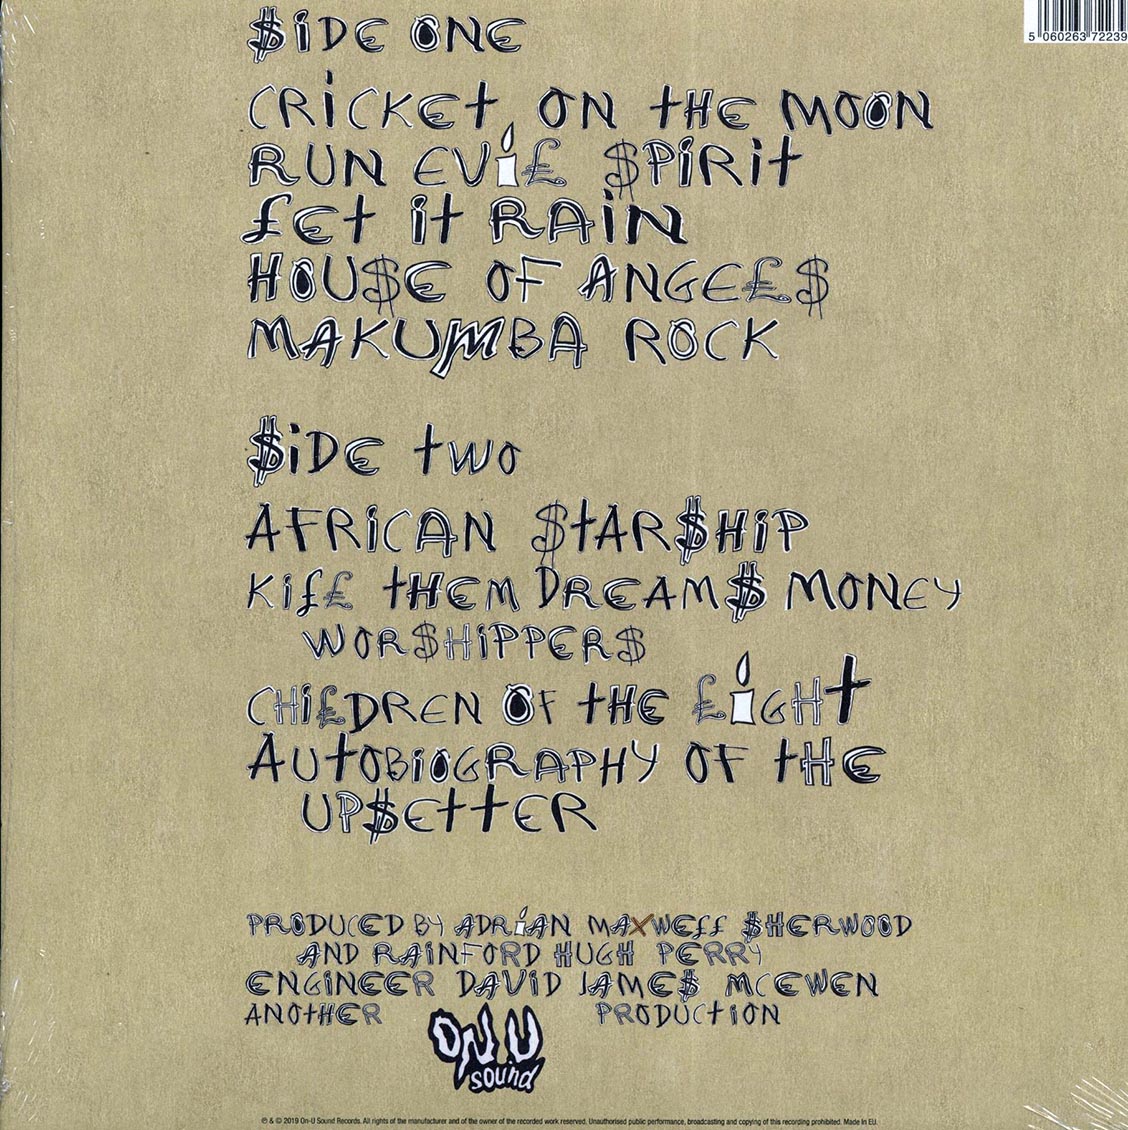 $iDE ONE
5 060263 72239
CRiCKET ON THE MOON
RUN EVi£ $PiRiT
£ET iT RAiN
HOU$E OF ANGE£$
MAKUMBA ROCK
$iDE TWO
AFRiCAN $TAR$HiP
Ki££ THEM DREAM$ MONEY
WOR$HiPPER$
CHi£DREN OF THE £iGHT
AUTOBiOGRAPHY OF THE
UP$ETTER
PRODUCED BY ADRiAN MAXWE££ $HERWOOD
AND RAINFORD HUGH PERRY
ENGiNEER DAViD JAME$ MCEWEN
ANOTHER ON U sound PRODUCTiON
℗ & © 2019 On-U Sound Records. All rights of the manufacturer and of the owner of the recorded work reserved. Unauthorised public performance, broadcasting and copying of this recording prohibited. Made in EU.